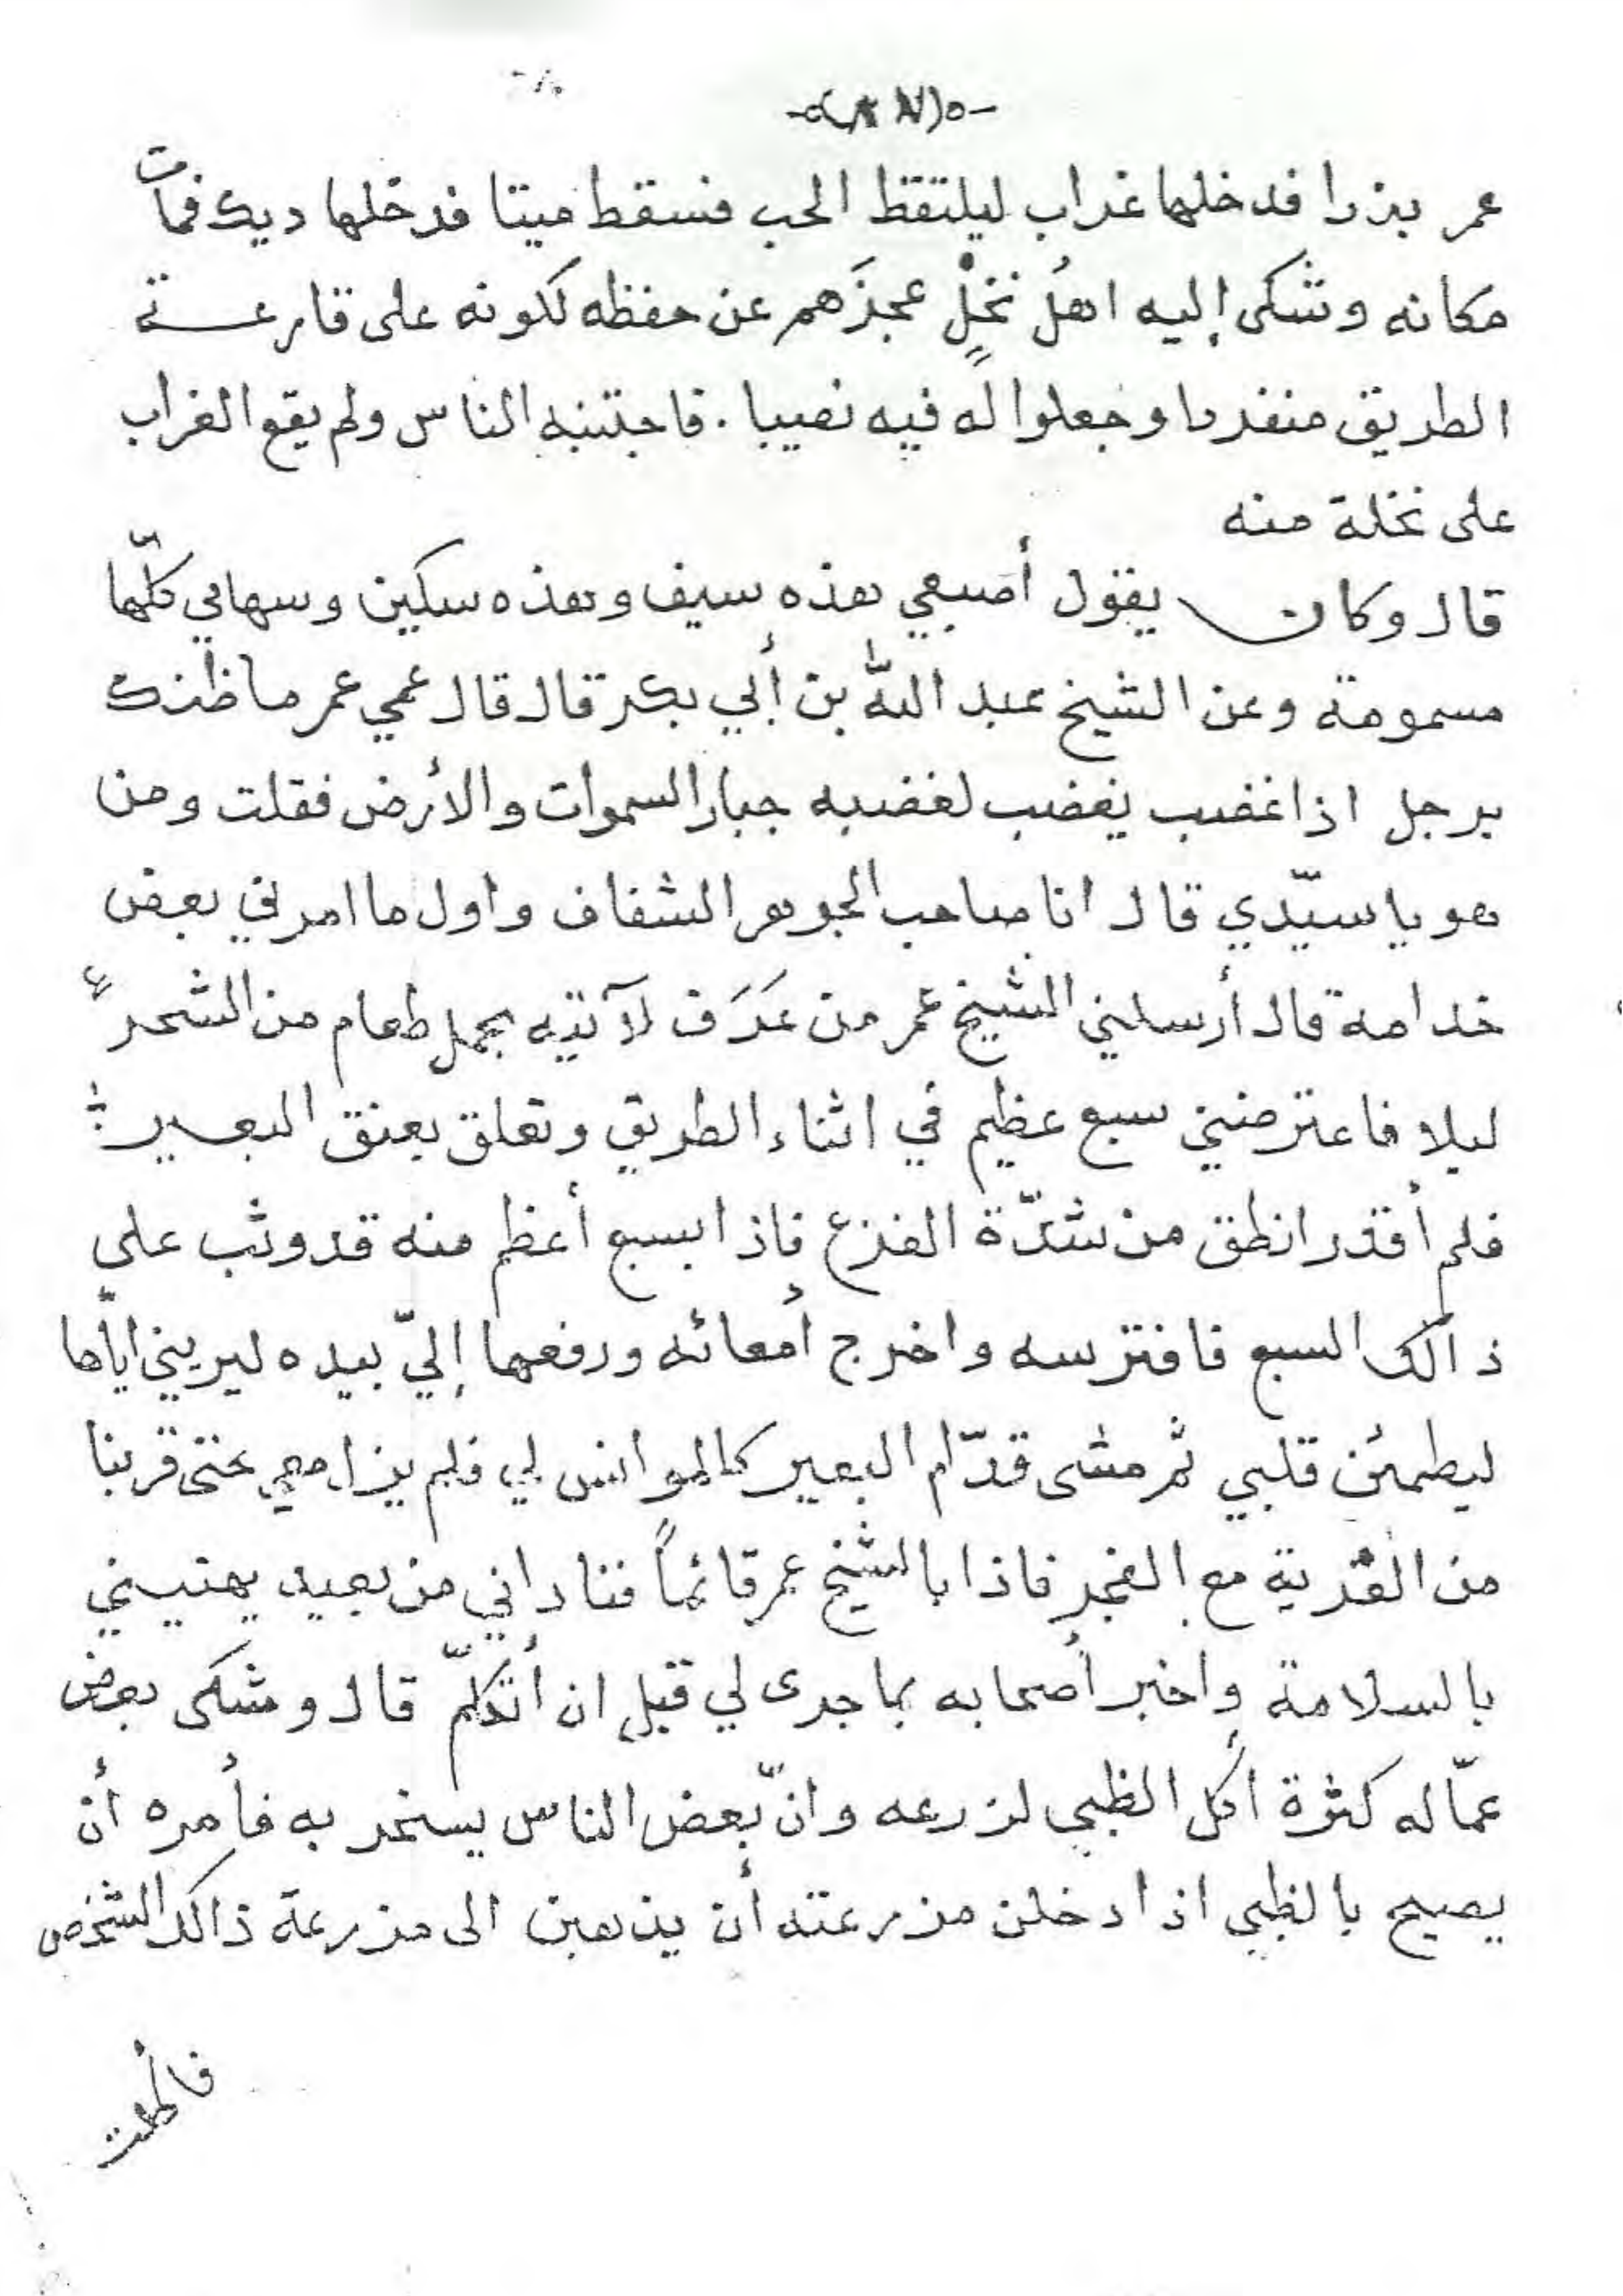 عمر بذرا فدخلها غراب ليلتقظ الحب فسقط ميتا فدخلها ديك فمات
مكانه وشكى إليه اهلُ نخْلٍ عجزَهم عن حفظه لكونه على قارعـة
الطريق منفردا وجعلوا له فيه نصيبا . فاجتنبه الناس ولم يقع الغراب
على نخلة منه
قال وكان يقول أصبعي هذه سيف وهذه سكين وسهامي كلّها
مسمومة وعن الشيخ عبد الله بن أبي بكر قال قال عمي عمر ما ظنك
برجل اذا غضب يغضب لغضبه جبار السموات والأرض فقلت ومن
هو يا سيّدي قال انا صاحب الجوهر الشفاف واول ما امرني بعض
خدامه قال أرسلني الشيخ عمر من عَرَف لآتيه بجمل طعام من الشحر
ليلا فاعترضني سبع عظيم في اثناء الطريق وتعلق بعنق البعير
فلم أقدر انطق من شدّة الفزع فاذا بسبع أعظم منه قد وثب على
ذالك السبع فافترسه واخرج أمعائه ورفعها إليّ بيده ليريني ايّاها
ليطمئن قلبي ثم مشى قدّام البعير كالموانس لي فلم يزل معي حتى قربنا
من القرية مع الفجر فاذا بالشيخ عمر قائماً فناداني من بعيد يهنيني
بالسلامة واخبر أصحابه بما جرى لي قبل ان أتكلّم قال وشكى بعض
عمّاله كثرة أكل الظبي لزرعه وانّ بعض الناس يسخر به فأمره أن
يصيح بالظبي اذا دخلن مزرعته أن يذهبن الى مزرعة ذالك الشخص